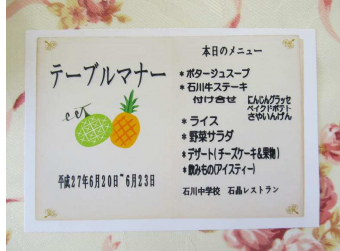 テーブルマナー
平成27年6月20日~6月23日
本日のメニュー
*ポタージュスープ
*石川牛ステーキ
付け合せ
にんじんグラッセ
ベイクドポテト
さやいんげん
*ライス
*野菜サラダ
*デザート(チーズケーキ&果物)
*飲みもの(アイスティー)
石川中学校 石晶レストラン